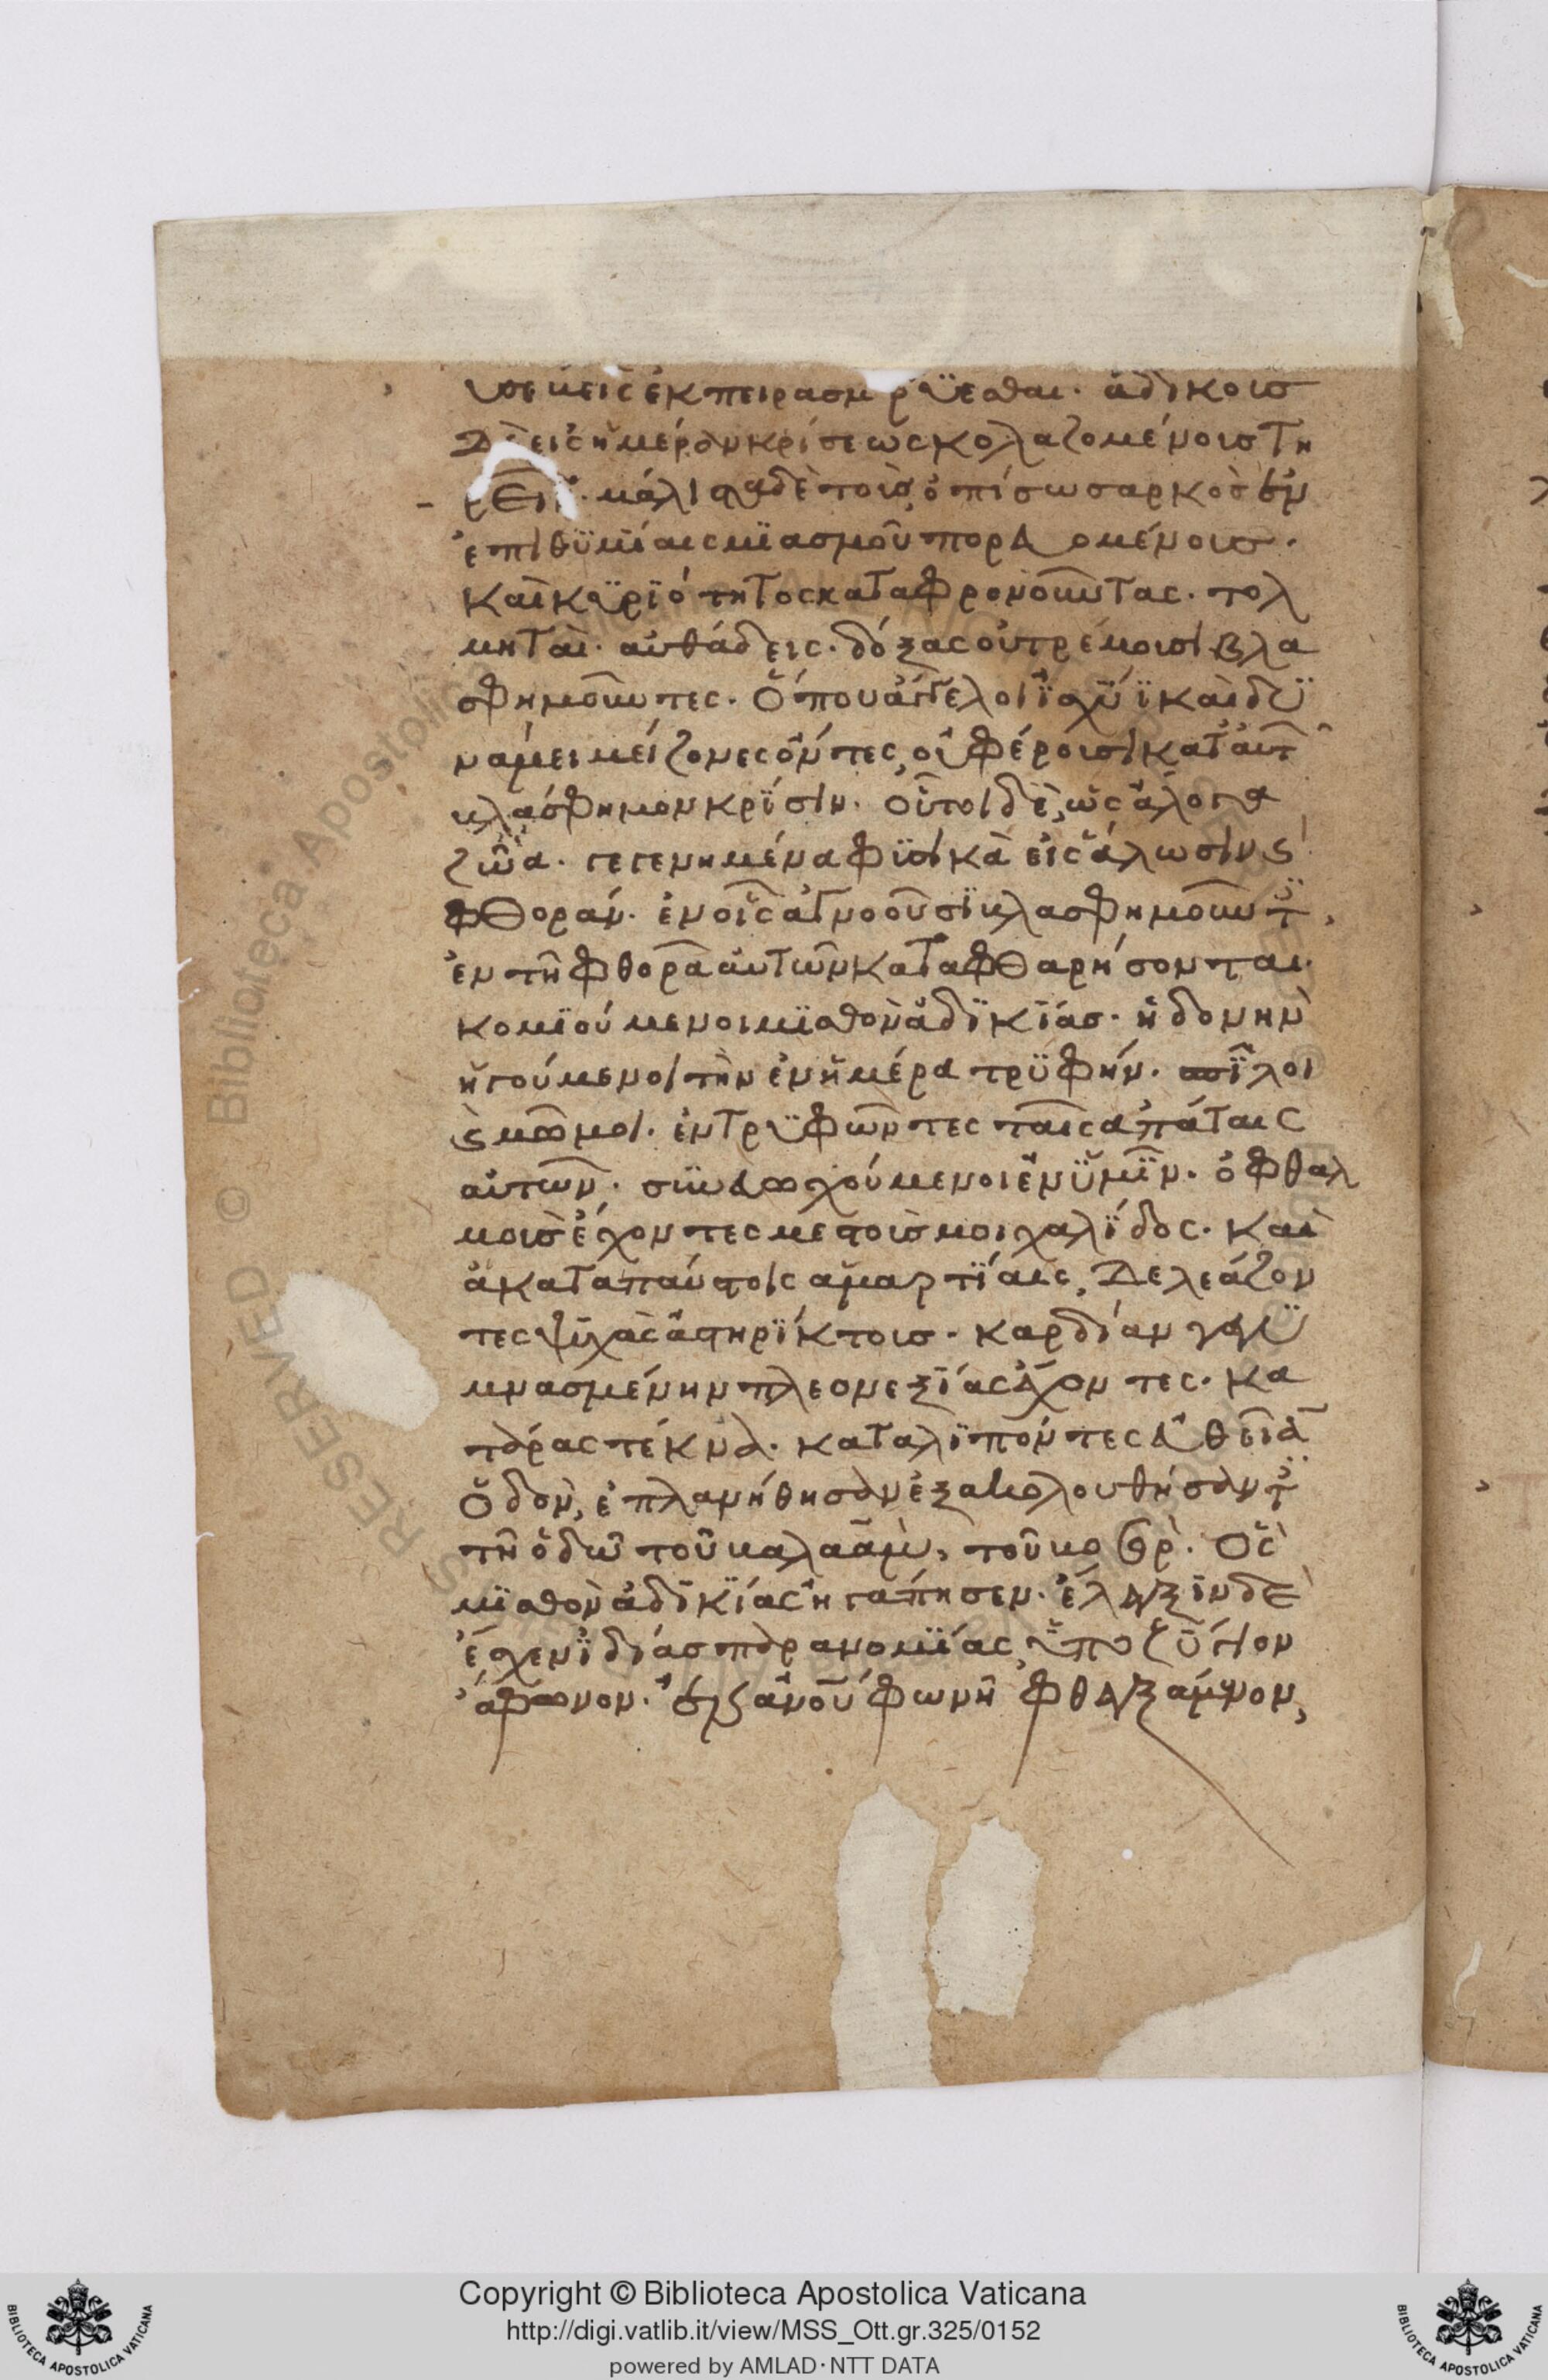 υσεβεῖς ἐκ πειρασμ ρύεσθαι· ἀδίκοις
δὲ εἰς ἡμέραν κρίσεως κολαζομένοις τη
ρεῖν· μάλιστα δὲ τοῖς ὀπίσω σαρκὸς ἐν
ἐπιθϋμΐαις μϊασμοῦ πορευομένοις·
καὶ κϋρϊότητος καταφρονοῦντας· τολ
μηταὶ· αὐθάδεις· δόξας οὐ τρέμουσι βλα
σφημοῦντες· ὅπου ἄγγελοι ἰσχύϊ καὶ δϋ
νάμει μείζονες ὄντες, οὐ φέρουσι κατ' αὐτ
βλάσφημον κρΐσιν· οὗτοι δὲ, ὡς ἄλογα
ζῶα· γεγενημένα φϋσικὰ εἰς ἅλωσιν ϛ
φθοράν· ἐν οἷς ἀγνοοῦσϊ βλασφημοῦντ,
ἐν τῆ φθορᾶ αὐτῶν καταφθαρήσονται·
κομϊούμενοι μϊσθὸν ἀδϊκΐας· ἡδονὴν
ἡγούμενοι τὴν ἐν ἡμέρα τρϋφήν· σπῖλοι
ϛ μῶμοι· ἐντρϋφῶντες ταῖς ἀπάταις
αὐτῶν· συνευωχούμενοι ἐν ϋμῖν· ὀφθαλ
μοὺς ἔχοντες μεστοὺς μοιχαλΐδος· καὶ
ἀκαταπαύστοις ἁμαρτΐαις, δελεάζον
τες ψϋχὰς ἀστηρΐκτους· καρδίαν γεγϋ
μνασμένην πλεονεξΐας ἔχοντες· κα
τάρας τέκνα· καταλϊπόντες εὐθεῖα
ὁδὸν, ἐπλανήθησαν ἐξακολουθήσαντ
τῆ ὁδῶ τοῦ βαλαὰμ, τοῦ βοσὸρ· ὃς
μϊσθὸν ἀδϊκΐας ἠγάπησεν· ἔλεγξϊν δὲ
ἔσχεν ἰδίας παρανομΐας, ὑποζΰγιον
ἄφωνον· ἐν ἀνου φωνῆ φθεγξάμενον,
Copyright © Biblioteca Apostolica Vaticana
http://digi.vatlib.it/view/MSS_Ott.gr.325/0152
powered by AMLAD·NTT DATA